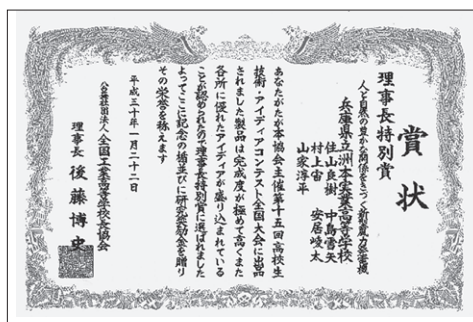 賞状
理事長特別賞
人と自然の豊かな関係をきづく新型風力発電機
兵庫県立洲本実業高等学校
住山良樹 中島雪矢
村上宙 安居崚太
山家淳平
あなたがたが本協会主催第十五回高校生
技術・アイディアコンテスト全国大会に出品
されました製品は完成度が極めて高くまた
各所に優れたアイディアが盛り込まれている
ことが認められたので理事長特別賞に選ばれました
よってここに記念の楯並びに研究奨励金を贈り
その栄誉を称えます
平成三十年一月二十二日
公益社団法人全国工業高等学校長協会
理事長 後藤博史